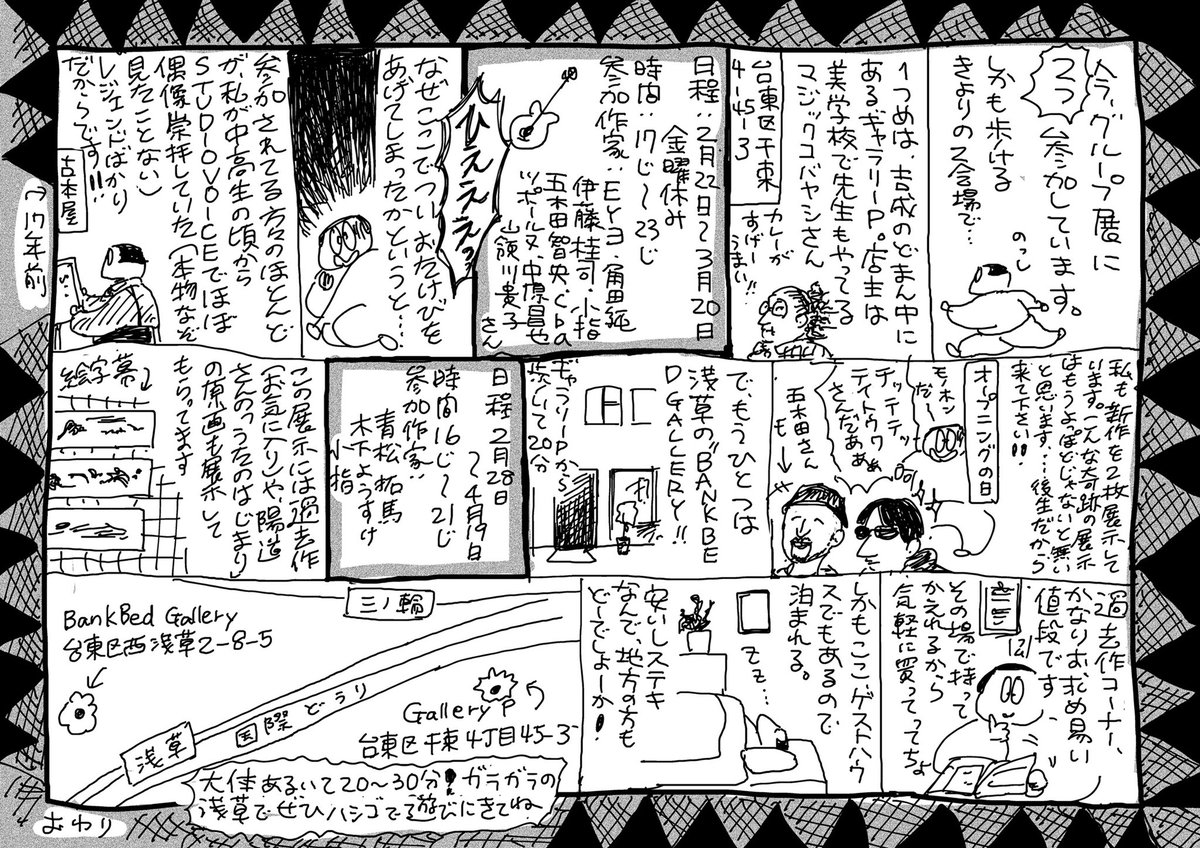 今、グループ展に
2つ
参加しています。
しかも歩ける
きょりの2会場で…
のっし
1つめは、吉成のどまん中に
あるギャラリーP。店主は
美学校で先生もやってる
マジックコバヤシさん
カレーが
すげー
うまい!!
台東区千束
4-45-3
日程:2月22日〜3月20日
金曜休み
時間:17じ〜23じ
参加作家:Eryヨ・角田純
伊藤桂司・小指
五木田智央・cba
ツポールヌ・中原昌也
山嶺川貴子
さん
ひえええっ
なぜここでついおたけびを
あげてしまったかというと…
参加されてる方々のほとんど
が、私が中高生の頃から
STUDIOVOICEでほぼ
偶像崇拝していた(本物なぞ
見たことない)
レジェンドばかり
だからです!!
古本屋
→17年前
私も新作を2枚展示して
います。こんな奇跡の展示
はもうよっぽどじゃないと無い
と思います…後生だから
来て下さい!!
オープニングの日
モノホン
チッチテッ
テイトウワ
さんだぁぁ
五木田さん
も→
で、もうひとつは
浅草の"BANKBE
DGALLERY!!
ギャラリーPから
歩いて20分
日程2月28日
〜4月19日
時間16じ〜21じ
参加作家:
青松拓馬
木下ようすけ
小指
この展示には過去作
(お気に入り)や、陽道
さんの「うたのはじまり」
の原画も展示して
もらってます
絵字幕↓
過去作コーナー、
かなりお求め易い
値段です
その場で持って
かえれるから
気軽に買ってってちょ
しかもここゲストハウ
スでもあるので
泊まれる。
ZZ…
安いしステキ
なんで、地方の方も
どーでしょーか!
三ノ輪
BankBed Gallery
台東区西浅草2-8-5
国際どうり
浅草
Gallery P
台東区千束4丁目45-3
大体あるいて20〜30分!ガラガラの
浅草でぜひハシゴで遊びにきてね
おわり